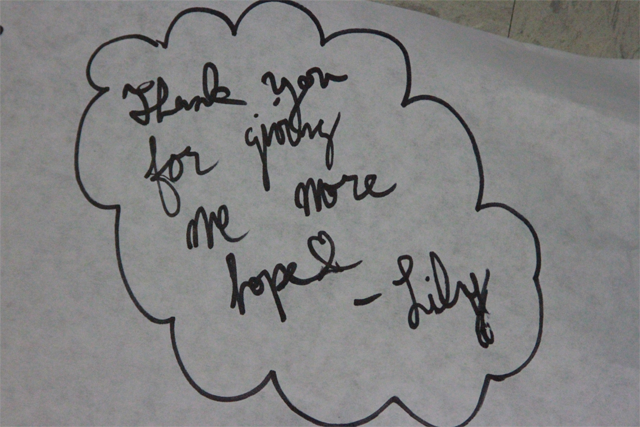 Thank you
for giving
me more
hope♡
- Lily